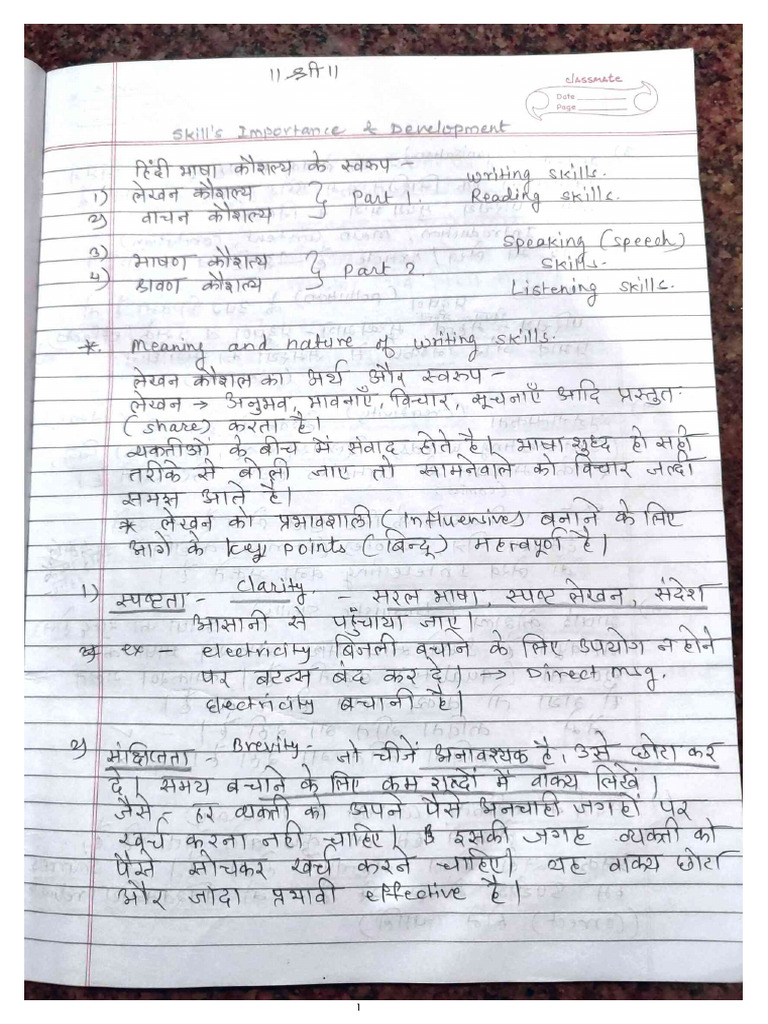 ॥ श्री ॥
classmate
Date
Page
Skill's Importance & Development
हिंदी भाषा कौशल्य के स्वरुप -
1) लेखन कौशल्य } Part 1. Writing skills.
2) वाचन कौशल्य Reading skills.
3) भाषण कौशल्य } Part 2. Speaking (speech) skills.
4) श्रवण कौशल्य Listening skills.
*. Meaning and nature of writing skills.
लेखन कौशल का अर्थ और स्वरुप -
लेखन → अनुभव, भावनाएँ, विचार, सूचनाएँ आदि प्रस्तुत
(share) करता है।
व्यक्तीओं के बीच में संवाद होते है। भाषा शुद्ध हो सही
तरीके से बोली जाए तो सामनेवाले को विचार जल्दी
समझ आते है।
* लेखन को प्रभावशाली (Influensive) बनाने के लिए
आगे के key points (बिन्दू) महत्वपूर्ण है।
1) स्पष्टता - Clarity. - सरल भाषा, स्पष्ट लेखन, संदेश
आसानी से पहुँचाया जाए।
ex - electricity बिजली बचाने के लिए उपयोग न होने
पर बटन्स बंद कर दे। → Direct msg.
electricity बचानी है।
2) संक्षिप्तता - Brevity - जो चीजें अनावश्यक है, उसे छोटा कर
दे। समय बचाने के लिए कम शब्दों में वाक्य लिखें।
जैसे - हर व्यक्ती को अपने पैसे अनचाही जगहों पर
खर्च करना नही चाहिए। इसकी जगह व्यक्ती को
पैसे सोचकर खर्च करने चाहिए। यह वाक्य छोटा
और जादा प्रभावी effective है।
1